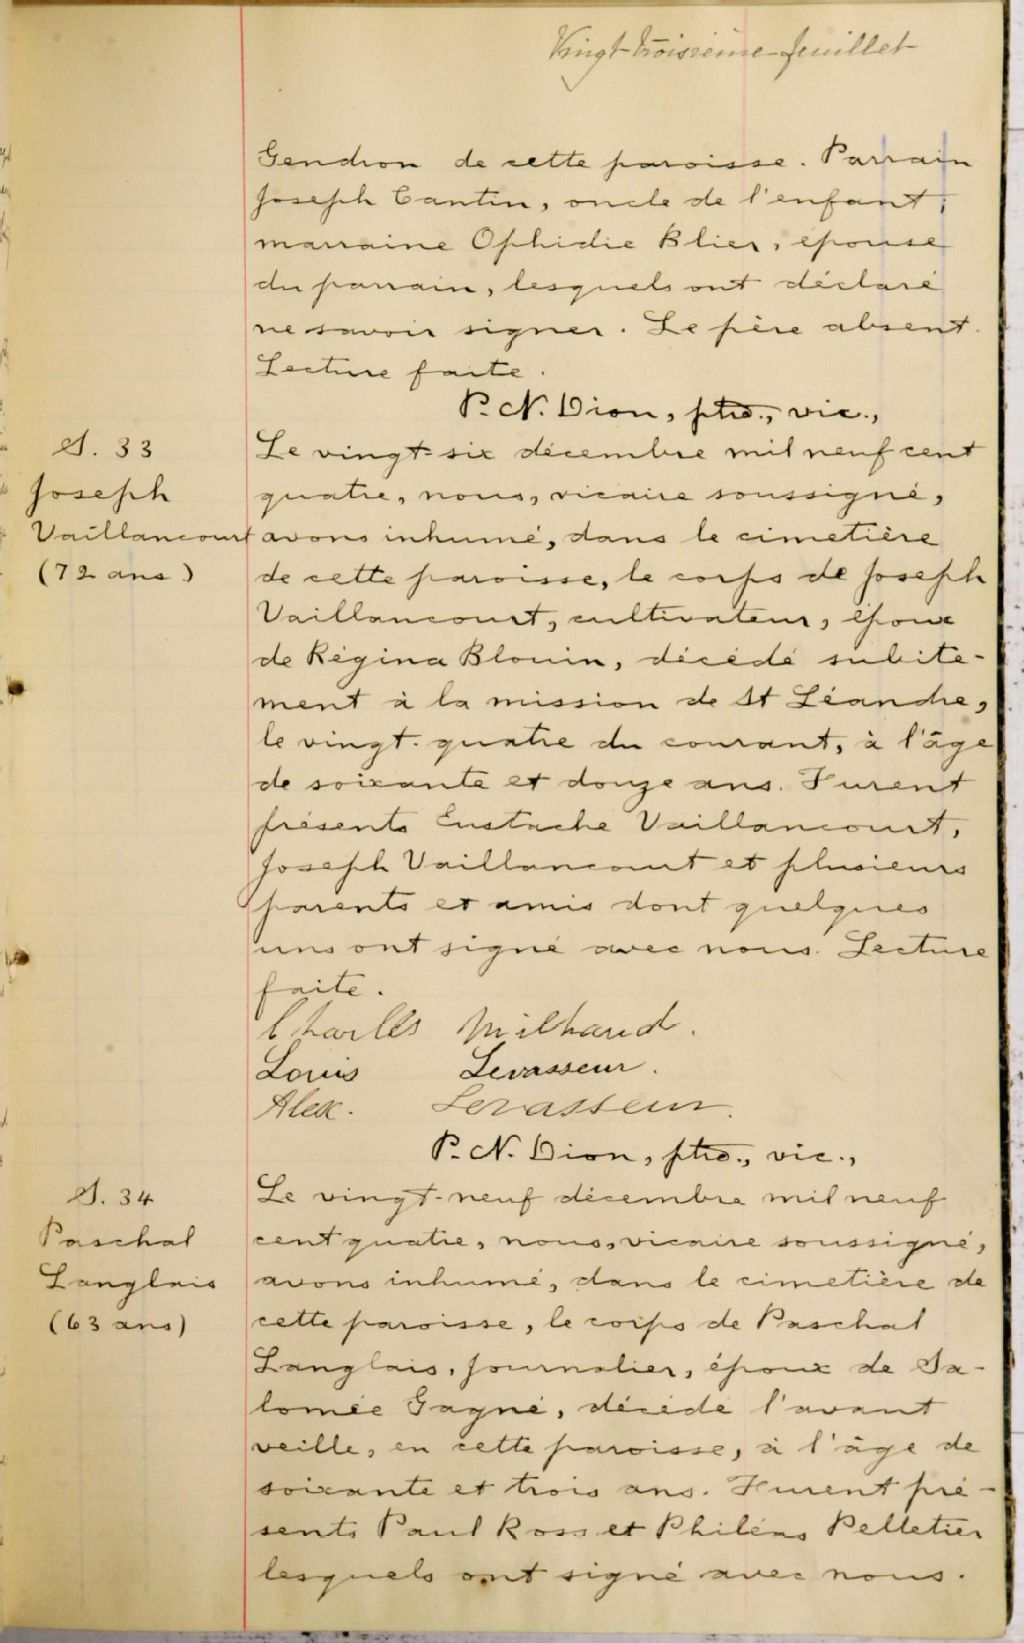 Vingt-troisième feuillet
Gendron de cette paroisse. Parrain
Joseph Cantin, oncle de l'enfant;
marraine Ophidie Blier, épouse
du parrain, lesquels ont déclaré
ne savoir signer. Le père absent.
Lecture faite.
P. N. Dion, ptre., vic.,
S. 33
Joseph
Vaillancourt
(72 ans)
Le vingt-six décembre mil neuf cent
quatre, nous, vicaire soussigné,
avons inhumé, dans le cimetière
de cette paroisse, le corps de Joseph
Vaillancourt, cultivateur, époux
de Régina Blouin, décédé subite-
ment à la mission de St Léandre,
le vingt-quatre du courant, à l'âge
de soixante et douze ans. Furent
présents Eustache Vaillancourt,
Joseph Vaillancourt et plusieurs
parents et amis dont quelques
uns ont signé avec nous. Lecture
faite.
Charles Milhaud.
Louis Levasseur.
Alex. Levasseur.
P. N. Dion, ptre., vic.,
S. 34
Paschal
Langlais
(63 ans)
Le vingt-neuf décembre mil neuf
cent quatre, nous, vicaire soussigné,
avons inhumé, dans le cimetière de
cette paroisse, le corps de Paschal
Langlais, journalier, époux de Sa-
lomée Gagné, décédé l'avant
veille, en cette paroisse, à l'âge de
soixante et trois ans. Furent pré-
sents Paul Ross et Philéas Pelletier
lesquels ont signé avec nous.